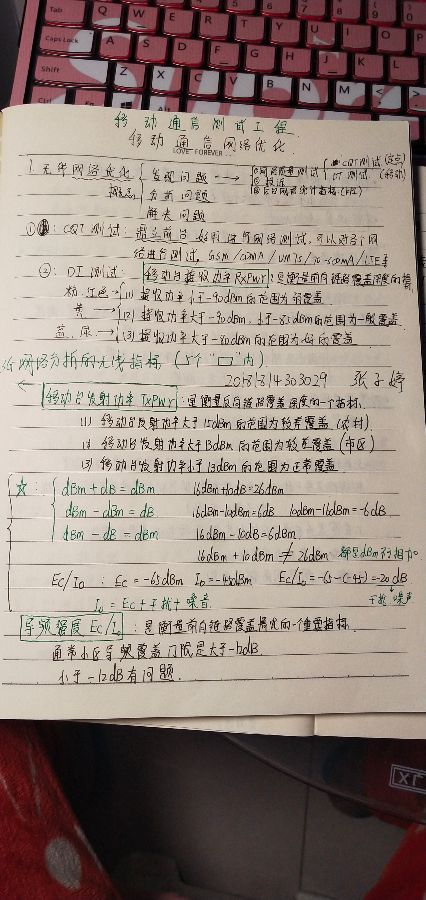 Tab Q W E R T Y U I O P
Caps Lock A S D F G H J K L
Shift Z X C V B N M
Ctrl Alt
移动通信测试工程
移动通信网络优化
LOVE FOREVER
1.无线网络优化 发现问题 → ①网络质量测试 CQT测试(定点)
DT测试(移动)
②投诉
分析问题
解决问题
① CQT测试: 进行网络测试,可以对多个网
络进行测试, GSM/CDMA/ /LTE等
② DT测试: 移动台接收功率RxPwr:是衡量前向链路覆盖深度的指标
粉、红色→(1)接收功率小于-90dBm的范围为弱覆盖
黄→(2)接收功率大于-90dBm,小于-85dBm的范围为一般覆盖
蓝、绿→(3)接收功率大于-80dBm的范围为好的覆盖
网络分析的无线指标(5个"口"内)
20181814303029 张子婷
移动台发射功率TxPwr:是衡量反向链路覆盖深度的一个指标
(1)移动台发射功率大于15dBm的范围为较差覆盖(农村)
(2)移动台发射功率大于13dBm的范围为较差覆盖(市区)
(3)移动台发射功率小于13dBm的范围为正常覆盖
☆: dBm+dB=dBm 16dBm+10dB=26dBm
dBm-dBm=dB 16dBm-10dBm=6dB 10dBm-16dBm=-6dB
dBm-dB=dBm 16dBm-10dB=6dBm
16dBm+10dBm≠26dBm 都是dBm不相加
Ec/Io: Ec=-65dBm Io=-45dBm Ec/Io=-65-(-45)=-20dB
Io=Ec+干扰+噪音 干扰 噪声
导频强度Ec/Io:是衡量前向链路覆盖情况的一个重要指标
通常小区导频覆盖门限是大于-12dB
小于-12dB有问题.